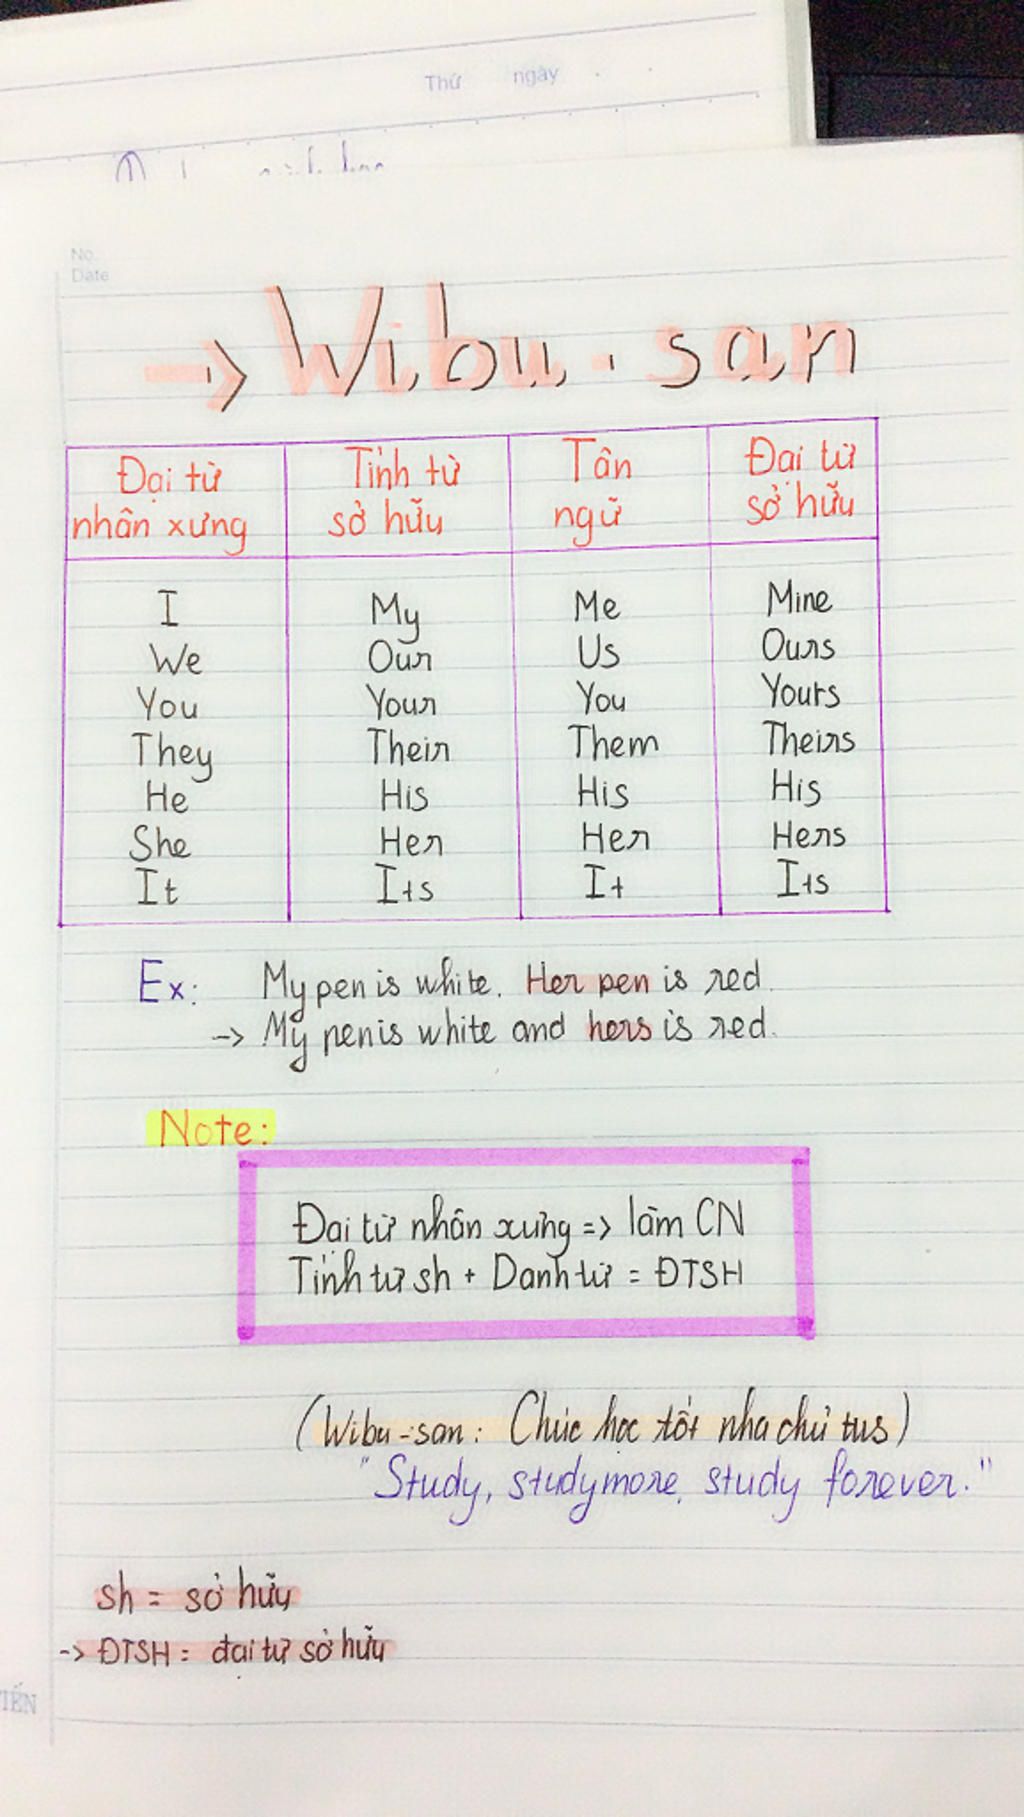 Thứ ngày
No.
Date
-> Wibu-san
Đại từ nhân xưng | Tính từ sở hữu | Tân ngữ | Đại từ sở hữu
I | My | Me | Mine
We | Our | Us | Ours
You | Your | You | Yours
They | Their | Them | Theirs
He | His | His | His
She | Her | Her | Hers
It | Its | It | Its
Ex: My pen is white. Her pen is red.
-> My pen is white and hers is red.
Note:
Đại từ nhân xưng => làm CN
Tính từ sh + Danh từ = ĐTSH
(Wibu-san: Chúc học tốt nha chủ tus)
"Study, study more, study forever."
sh = sở hữu
-> ĐTSH = đại từ sở hữu
TIẾN